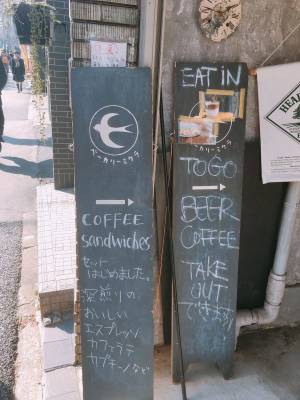 ベーカリーミウラ
COFFEE
sandwiches
セット
はじめました。
深煎りの
おいしい
エスプレッソ
カフェラテ
カプチーノなど
EAT IN
TO GO
BEER
COFFEE
TAKE
OUT
できます!